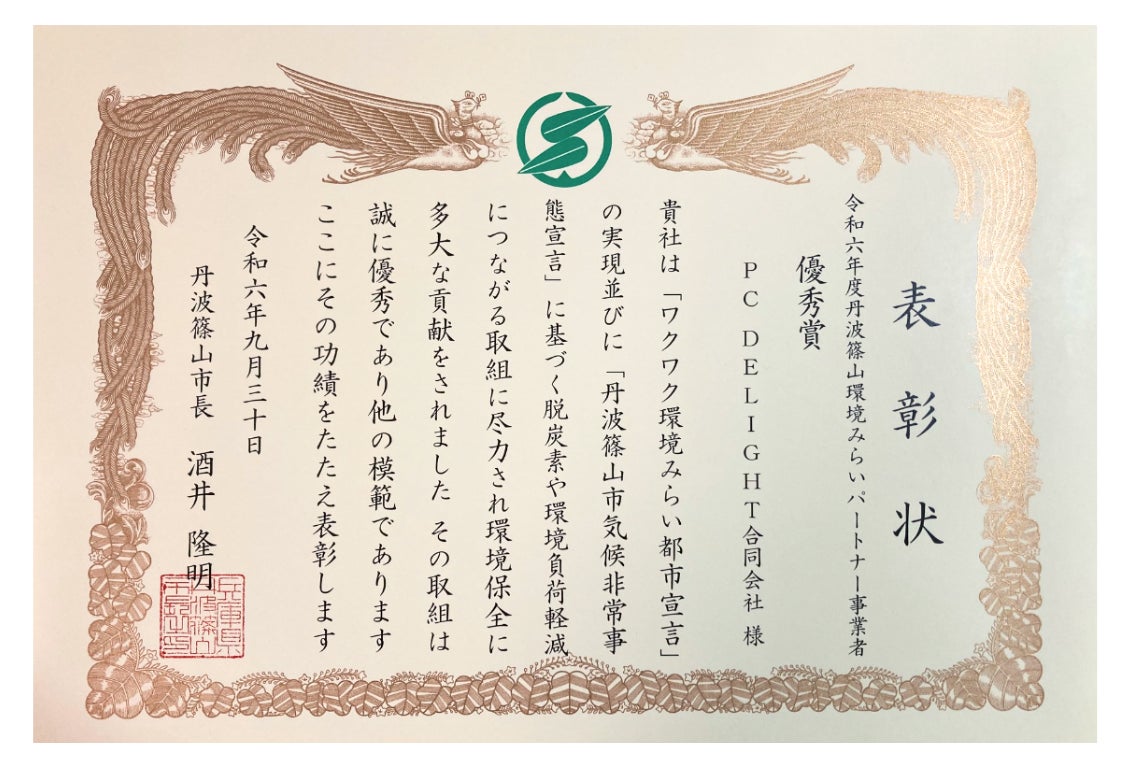 表彰状
令和六年度丹波篠山環境みらいパートナー事業者
優秀賞
PC DELIGHT合同会社 様
貴社は「ワクワク環境みらい都市宣言」
の実現並びに「丹波篠山市気候非常事
態宣言」に基づく脱炭素や環境負荷軽減
につながる取組に尽力され環境保全に
多大な貢献をされました その取組は
誠に優秀であり他の模範であります
ここにその功績をたたえ表彰します
令和六年九月三十日
丹波篠山市長 酒井 隆明